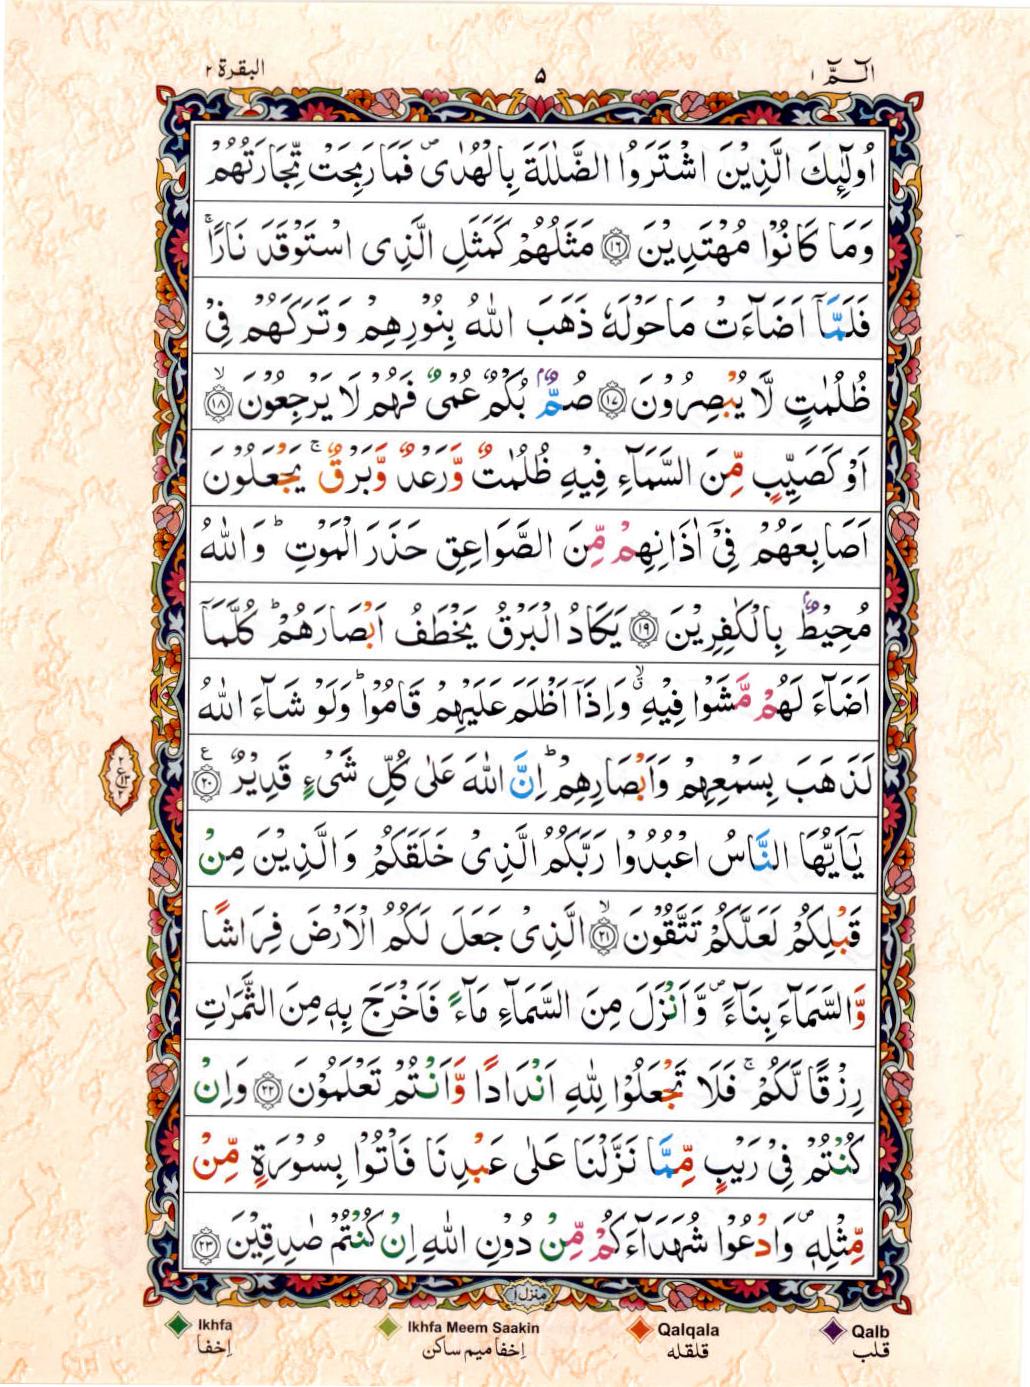 الٓـمّٓ ١
۵
البقرة ٢
اُولٰٓئِكَ الَّذِيْنَ اشْتَرَوُا الضَّلٰلَةَ بِالْهُدٰى ۪ فَمَا رَبِحَتْ تِّجَارَتُهُمْ
وَمَا كَانُوْا مُهْتَدِيْنَ ۝١٦ مَثَلُهُمْ كَمَثَلِ الَّذِى اسْتَوْقَدَ نَارًا ۚ
فَلَمَّآ اَضَآءَتْ مَا حَوْلَهٗ ذَهَبَ اللّٰهُ بِنُوْرِهِمْ وَتَرَكَهُمْ فِىْ
ظُلُمٰتٍ لَّا يُبْصِرُوْنَ ۝١٧ صُمٌّۢ بُكْمٌ عُمْىٌ فَهُمْ لَا يَرْجِعُوْنَ ۙ۝١٨
اَوْ كَصَيِّبٍ مِّنَ السَّمَآءِ فِيْهِ ظُلُمٰتٌ وَّرَعْدٌ وَّبَرْقٌ ۚ يَجْعَلُوْنَ
اَصَابِعَهُمْ فِىْٓ اٰذَانِهِمْ مِّنَ الصَّوَاعِقِ حَذَرَ الْمَوْتِ ؕ وَاللّٰهُ
مُحِيْطٌۢ بِالْكٰفِرِيْنَ ۝١٩ يَكَادُ الْبَرْقُ يَخْطَفُ اَبْصَارَهُمْ ؕ كُلَّمَآ
اَضَآءَ لَهُمْ مَّشَوْا فِيْهِ ۙۗ وَاِذَآ اَظْلَمَ عَلَيْهِمْ قَامُوْا ؕ وَلَوْ شَآءَ اللّٰهُ
لَذَهَبَ بِسَمْعِهِمْ وَاَبْصَارِهِمْ ؕ اِنَّ اللّٰهَ عَلٰى كُلِّ شَىْءٍ قَدِيْرٌ ۝٢٠ ع
يٰٓاَيُّهَا النَّاسُ اعْبُدُوْا رَبَّكُمُ الَّذِىْ خَلَقَكُمْ وَالَّذِيْنَ مِنْ
قَبْلِكُمْ لَعَلَّكُمْ تَتَّقُوْنَ ۙ۝٢١ الَّذِىْ جَعَلَ لَكُمُ الْاَرْضَ فِرَاشًا
وَّالسَّمَآءَ بِنَآءً ۪ وَّاَنْزَلَ مِنَ السَّمَآءِ مَآءً فَاَخْرَجَ بِهٖ مِنَ الثَّمَرٰتِ
رِزْقًا لَّكُمْ ۚ فَلَا تَجْعَلُوْا لِلّٰهِ اَنْدَادًا وَّاَنْتُمْ تَعْلَمُوْنَ ۝٢٢ وَاِنْ
كُنْتُمْ فِىْ رَيْبٍ مِّمَّا نَزَّلْنَا عَلٰى عَبْدِنَا فَاْتُوْا بِسُوْرَةٍ مِّنْ
مِّثْلِهٖ ۪ وَادْعُوْا شُهَدَآءَكُمْ مِّنْ دُوْنِ اللّٰهِ اِنْ كُنْتُمْ صٰدِقِيْنَ ۝٢٣
منزل ١
Ikhfa
اِخفا
Ikhfa Meem Saakin
اِخفا ميم ساكن
Qalqala
قلقله
Qalb
قلب